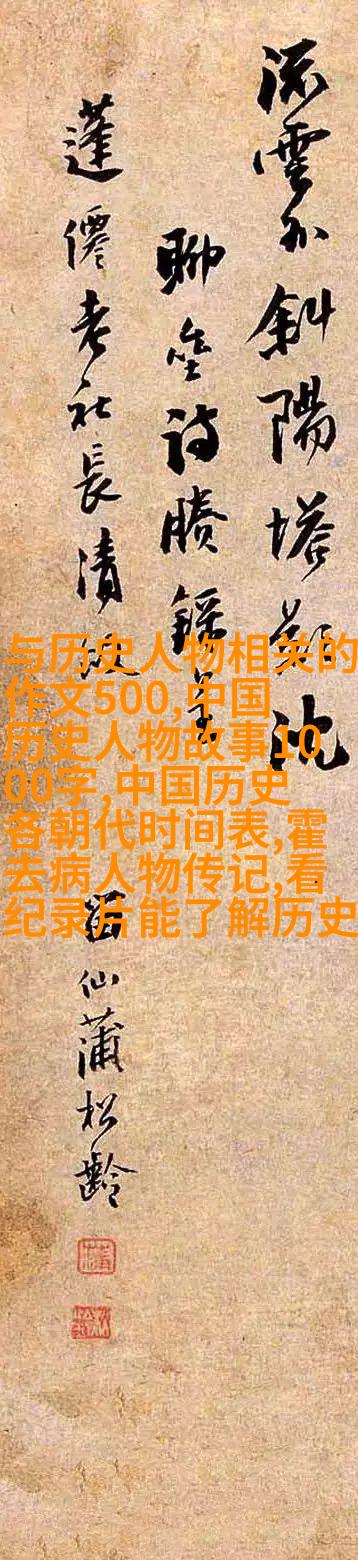 流雲外斜陽塔影沈
聊詩
蓬僊老社長清
仙蒲松齡
与历史人物相关的
作文500,中国
历史人物故事10
00字,中国历史
各朝代时间表,霍
去病人物传记,看
纪录片能了解历史